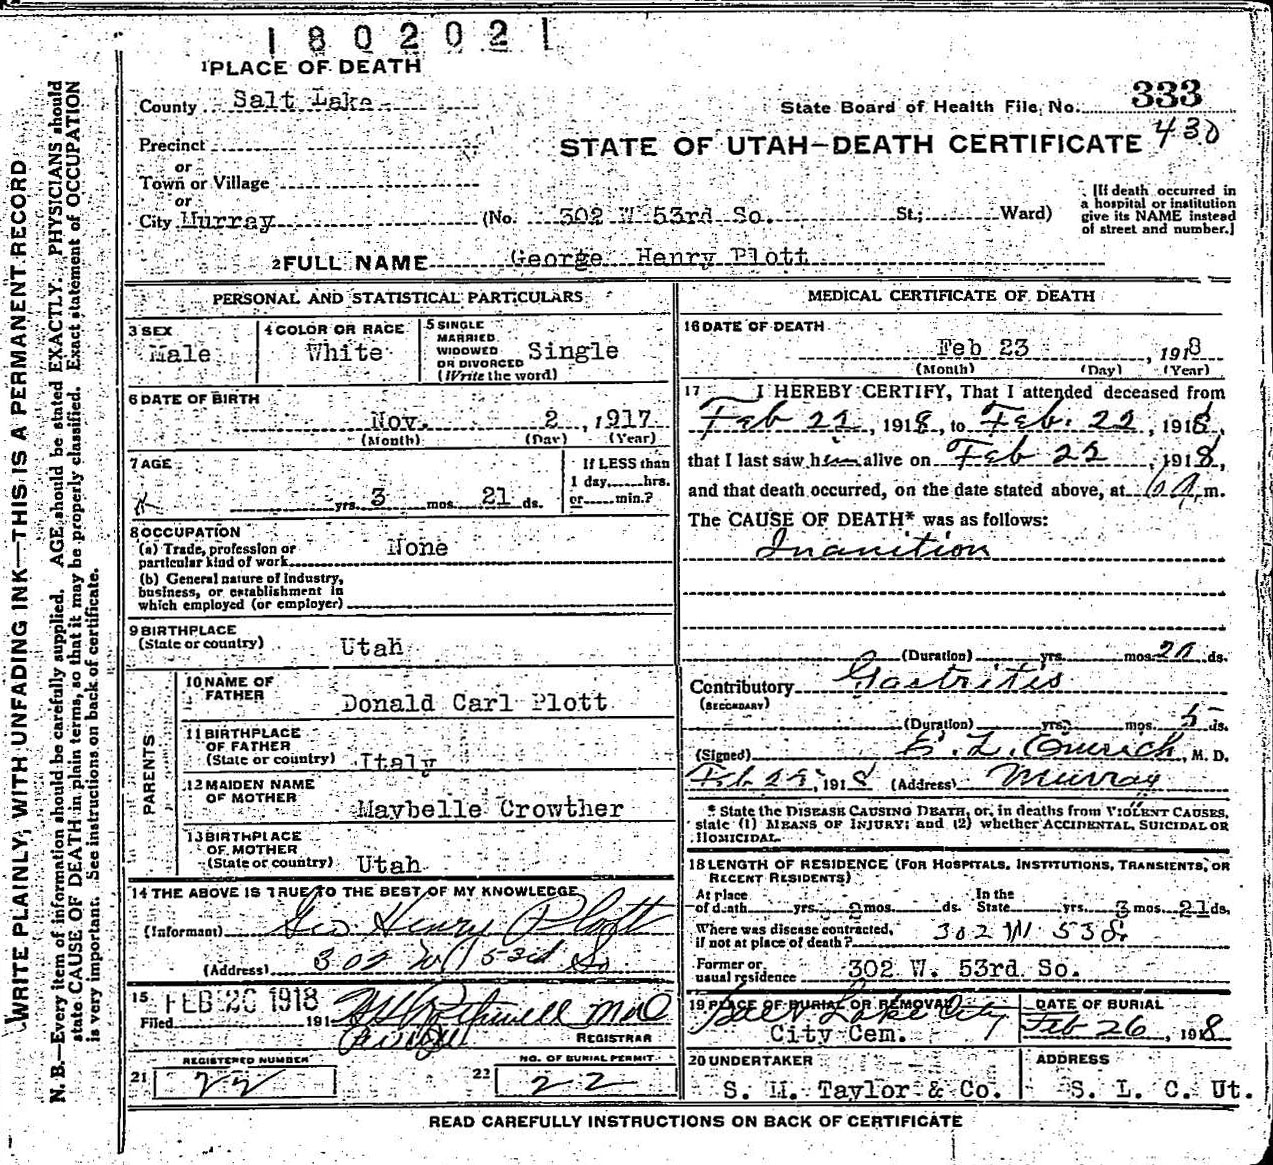 1 8 0 2 0 2 1
1 PLACE OF DEATH
County Salt Lake
State Board of Health File No. 333
430
Precinct
STATE OF UTAH—DEATH CERTIFICATE
or
Town or Village
or
City Murray (No. 302 W 53rd So. St; Ward)
[If death occurred in
a hospital or institution
give its NAME instead
of street and number.]
2 FULL NAME George Henry Plott
PERSONAL AND STATISTICAL PARTICULARS
3 SEX
Male
4 COLOR OR RACE
White
5 SINGLE
MARRIED
WIDOWED
OR DIVORCED
(Write the word)
Single
6 DATE OF BIRTH
Nov. 2, 1917
(Month) (Day) (Year)
7 AGE
yrs. 3 mos. 21 ds.
If LESS than
1 day, hrs.
or min.?
8 OCCUPATION
(a) Trade, profession or
particular kind of work None
(b) General nature of Industry,
business, or establishment in
which employed (or employer)
9 BIRTHPLACE
(State or country) Utah
PARENTS
10 NAME OF
FATHER
Donald Carl Plott
11 BIRTHPLACE
OF FATHER
(State or country) Italy
12 MAIDEN NAME
OF MOTHER
Maybelle Crowther
13 BIRTHPLACE
OF MOTHER
(State or country) Utah
14 THE ABOVE IS TRUE TO THE BEST OF MY KNOWLEDGE
(Informant) Geo Henry Plott
(Address) 302 W 53rd So
15
Filed FEB 26 1918 191
REGISTRAR
REGISTERED NUMBER
21 22
NO. OF BURIAL PERMIT
22 22
MEDICAL CERTIFICATE OF DEATH
16 DATE OF DEATH
Feb 23, 1918
(Month) (Day) (Year)
17 I HEREBY CERTIFY, That I attended deceased from
Feb 22, 1918, to Feb. 22, 1918,
that I last saw him alive on Feb 22, 1918,
and that death occurred, on the date stated above, at m.
The CAUSE OF DEATH* was as follows:
Inanition
(Duration) yrs. mos. ds.
Contributory Gastritis
(SECONDARY)
(Duration) yrs. mos. 5 ds.
(Signed) M. D.
Feb 1918 (Address) Murray
* State the DISEASE CAUSING DEATH, or, in deaths from VIOLENT CAUSES,
state (1) MEANS OF INJURY; and (2) whether ACCIDENTAL, SUICIDAL OR
HOMICIDAL.
18 LENGTH OF RESIDENCE (FOR HOSPITALS, INSTITUTIONS, TRANSIENTS, OR
RECENT RESIDENTS)
At place
of death yrs. mos. ds.
In the
State yrs. 3 mos. 21 ds.
Where was disease contracted,
if not at place of death? 302 W 53 S
Former or
usual residence 302 W. 53rd So.
19 PLACE OF BURIAL OR REMOVAL
Salt Lake City
City Cem.
DATE OF BURIAL
Feb 26, 1918
20 UNDERTAKER
S. M. Taylor & Co.
ADDRESS
S. L. C. Ut.
READ CAREFULLY INSTRUCTIONS ON BACK OF CERTIFICATE
WRITE PLAINLY, WITH UNFADING INK—THIS IS A PERMANENT RECORD
N. B.—Every item of information should be carefully supplied. AGE should be stated EXACTLY. PHYSICIANS should
state CAUSE OF DEATH in plain terms, so that it may be properly classified. Exact statement of OCCUPATION
is very important. See instructions on back of certificate.